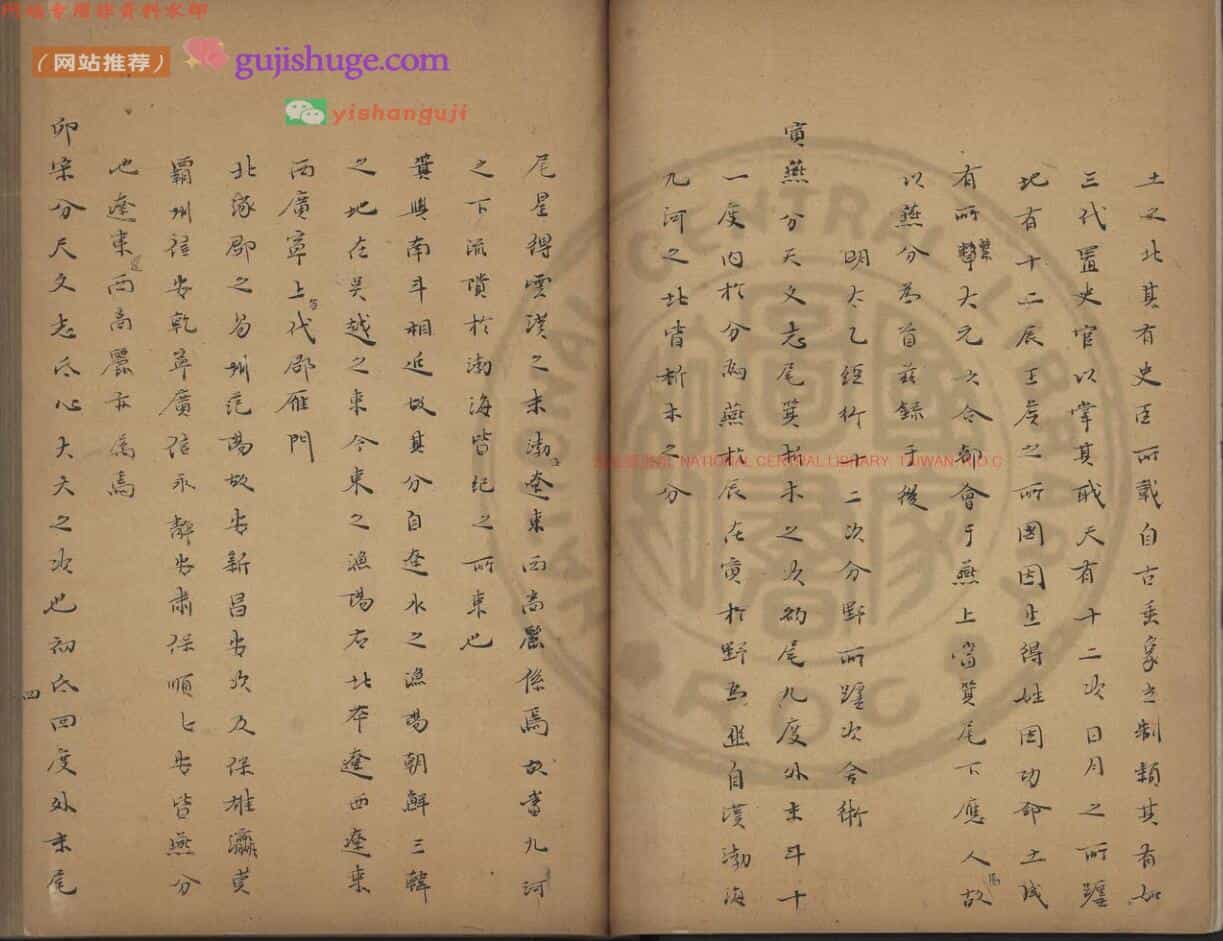 网站专用非资料水印
（网站推荐）
gujishuge.com
yishanguji
NATIONAL CENTRAL LIBRARY TAIWAN R.O.C
土之北其有史臣所載自古垂象之制類其有如
三代置史官以掌其職天有十二次日月之所躔
地有十二辰王矦之所國因生得姓因功命土
有所繫大元六合都會于燕上當箕尾下應人故
以燕分為首茲錄于後
明太乙經行十二次分野所躔次舍術
寅燕分天文志尾箕析木之次初尾九度外末斗十
一度內於分為燕於辰在寅於野為幽自漢渤海
九河之北皆析木之分
尾星得雲漢之末渤遼東西高麗係焉故當九河
之下流濱於渤海皆紀之所東也
箕與南斗相近故其分自遼水之漁陽朝鮮三韓
之地在吳越之東今東之漁陽右北平遼西遼東
西廣寧上代郡雁門
北涿郡之易州范陽故安新昌安次及保雄瀛莫
霸州信安乾寧廣信永靜安肅保順七安皆燕分
也遼東西高麗亦屬焉
卯宋分天文志氐心大火之次也初氐四度外末尾
四